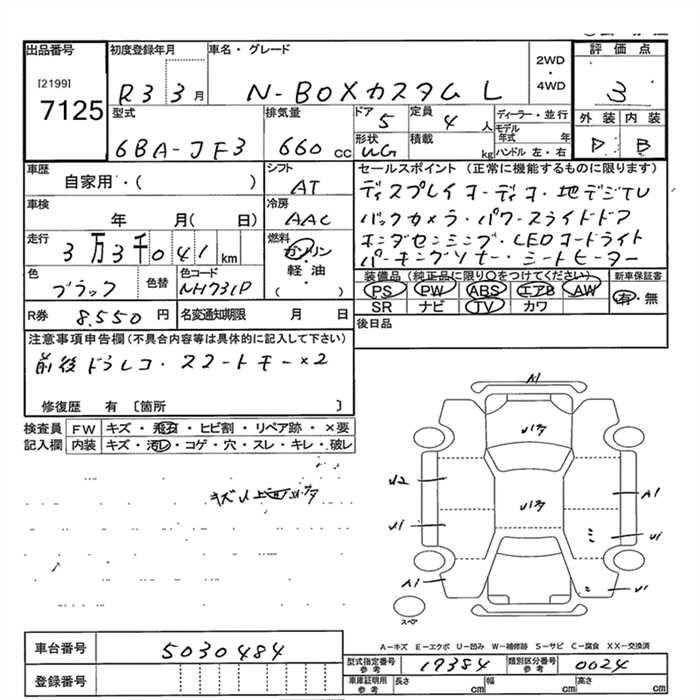 出品番号
[2199]
7125
初度登録年月
R3 3月
車名・グレード
N-BOXカスタム L
2WD
・
4WD
評価点
3
外装 内装
D B
型式
6BA-JF3
排気量
660 cc
ドア
5
定員
4 人
形状
WG
積載
kg
ディーラー・並行
モデル年式 年
ハンドル 左・右
車歴
自家用・( )
シフト
AT
車検
年 月( 日)
冷房
AAC
走行
3万3千041 km
燃料
ガソリン
軽・油
( )
色
ブラック
色替
色コード
NH731P
R券 8.550 円
名変通知期限 月 日
セールスポイント (正常に機能するものに限ります)
ディスプレイオーディオ・地デジTV
バックカメラ・パワースライドドア
ホンダセンシング・LEDオートライト
パーキングソナー・シートヒーター
装備品 (純正品に限り○をつけてください)
PS PW ABS エアB AW
SR ナビ TV カワ
新車保証書
有・無
後日品
注意事項申告欄(不具合内容等は具体的に記入して下さい)
前後ドラレコ・スマートキー×2
修復歴 有 〔箇所 〕
検査員
記入欄
FW キズ・飛石・ヒビ割・リペア跡・×要
内装 キズ・汚レ・コゲ・穴・スレ・キレ・破レ
A1
U2
U1
A1
A1
U1
U1
スペア
A−キズ E−エクボ U−凹み W−補修跡 S−サビ C−腐食 XX−交換済
車台番号 5030484
登録番号
型式指定番号
参考
17384
類別区分番号
参考
0024
車庫証明用
参考
長さ cm 幅 cm 高さ cm